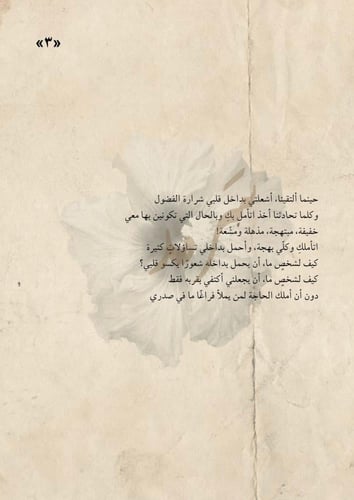 «٣»
حينما ألتقيتا، أشعلتي بداخل قلبي شرارة الفضول
وكلما تحادثنا أخذ اتأمل بكِ وبالحال التي تكونين بها معي
خفيفة، مبتهجة، مذهلة ومشّعة!
اتأملكِ وكلّي بهجة، وأحمل بداخلي تساؤلات كثيرة
كيف لشخصٍ ما، أن يحمل بداخله شعورًا يكسو قلبي؟
كيف لشخصٍ ما، أن يجعلني أكتفي بقربه فقط
دون أن أملك الحاجة لمن يملأ فراغًا ما في صدري